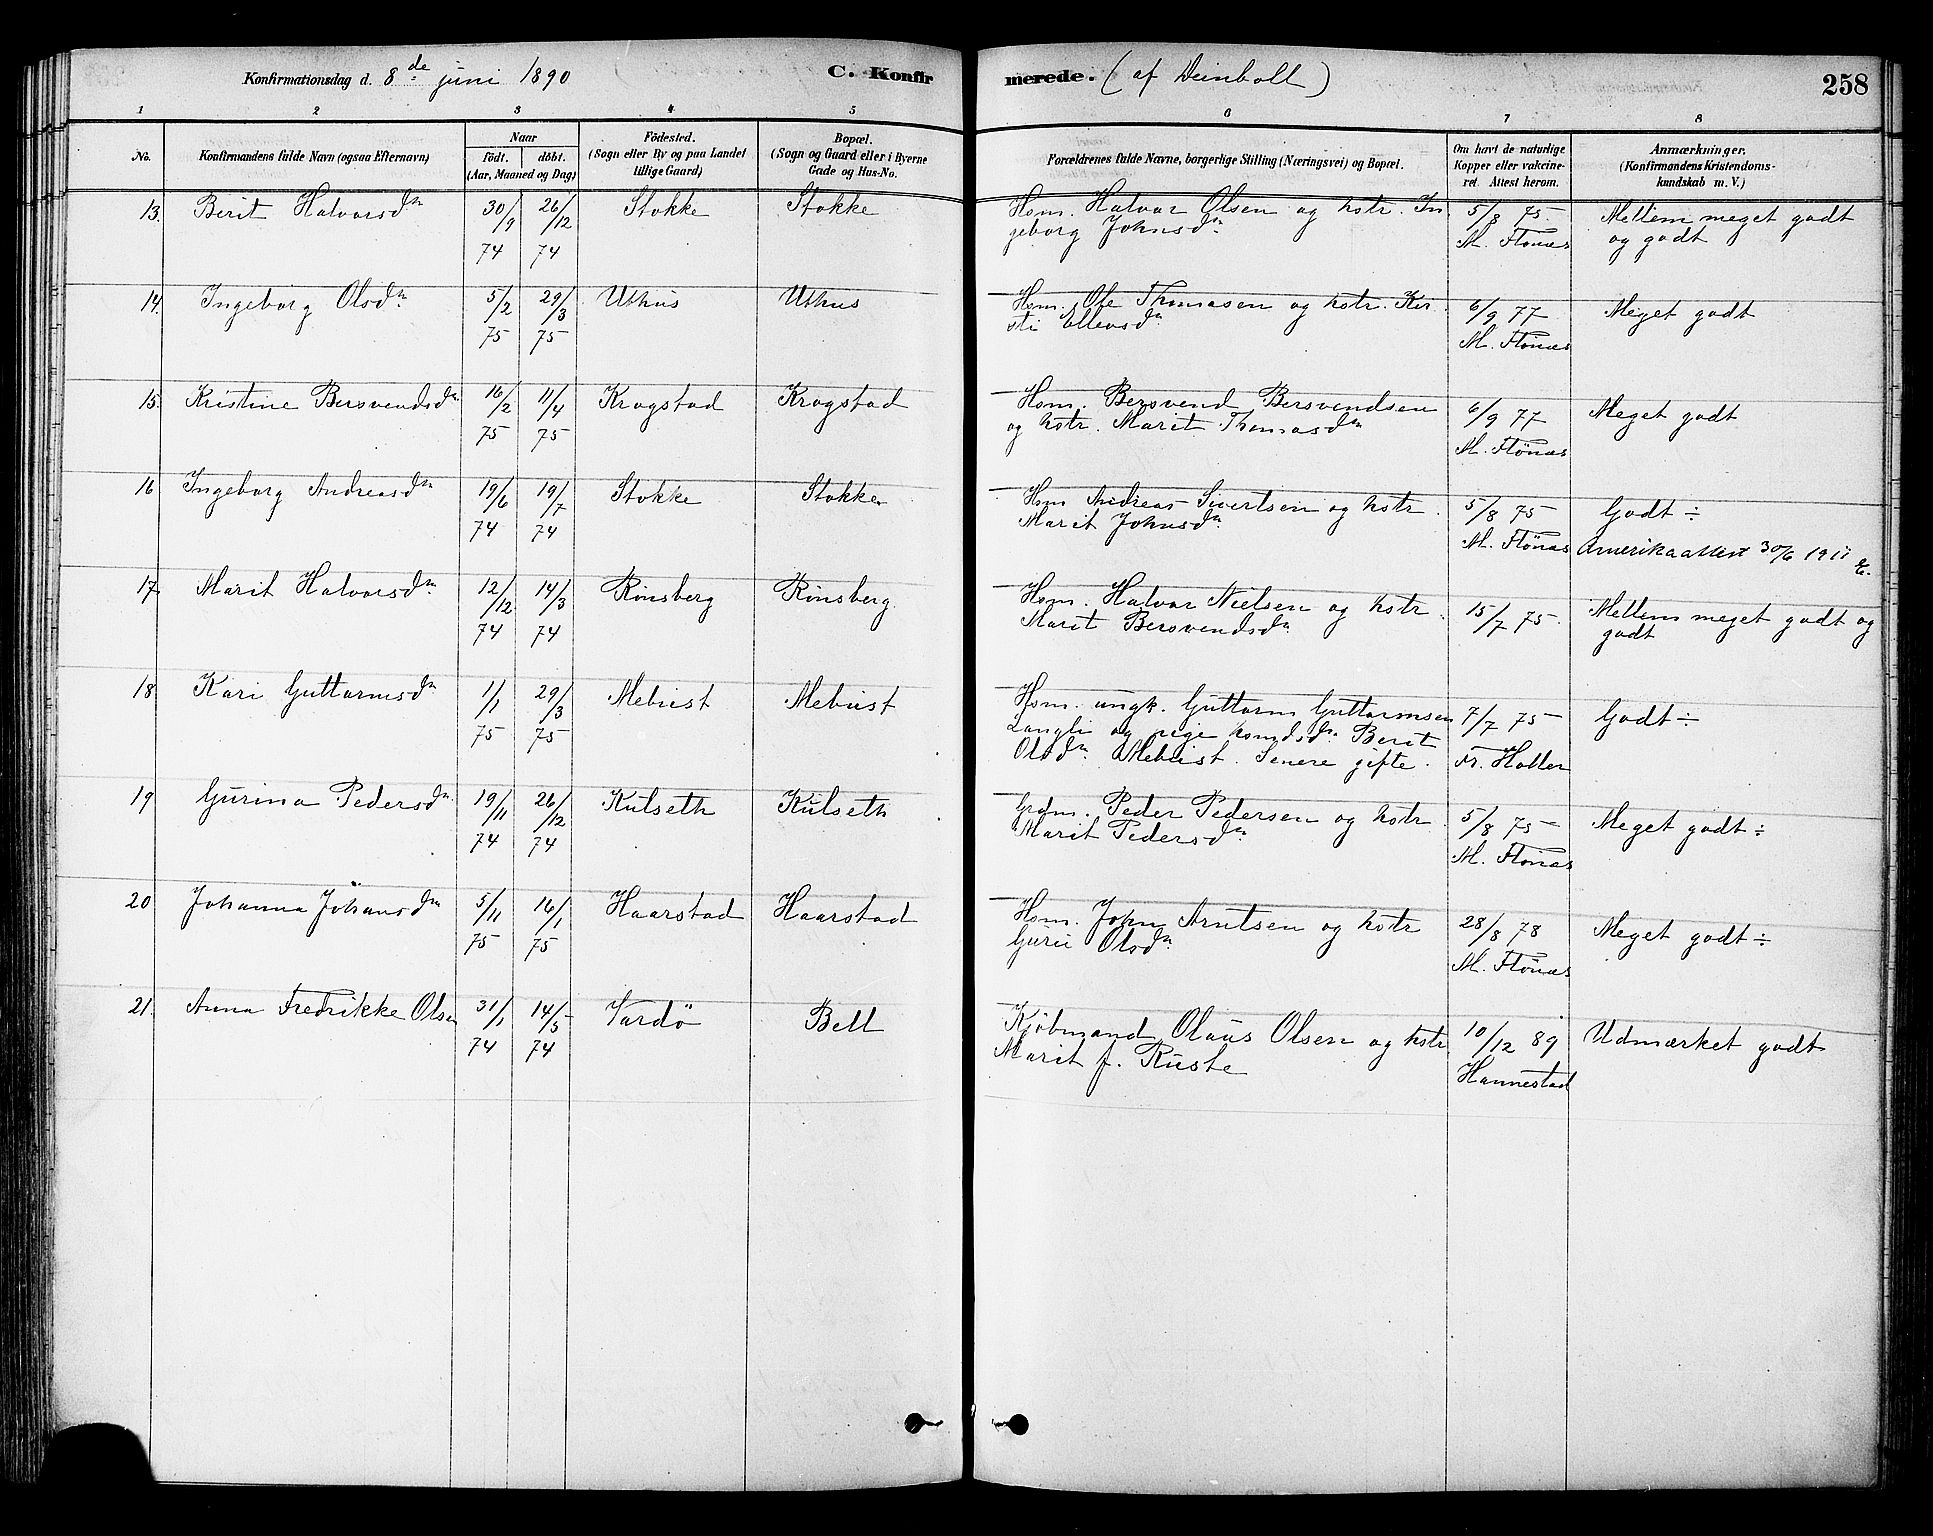 Konfirmationsdag d. 8de juni 1890
C. Konfir
merede. (af Deinboll)
258
1 2 3 4 5 6 7 8
No.
Konfirmandens fulde Navn (ogsaa Efternavn)
Naar
födt. döbt.
(Aar, Maaned og Dag)
Födested.
(Sogn eller By og paa Landet
tillige Gaard)
Bopæl.
(Sogn og Gaard eller i Byerne
Gade og Hus-No.
Forældrenes fulde Navne, borgerlige Stilling (Næringsvei) og Bopæl.
Om havt de naturlige
Kopper eller vakcine-
ret. Attest herom.
Anmærkninger,
(Konfirmandens Kristendoms-
kundskab m. V.)
13. Berit Halvorsdr 30/9 74 26/12 74 Stokke Stokke Hsm. Halvor Olsen og hstr. In 5/8 75 Mellem meget godt
geborg Johnsdr M. Flönæs og godt
14. Ingeborg Olsdr 5/2 75 29/3 75 Uthus Uthus Hsm. Ole Thomasen og hstr. Ker 6/9 77 Meget godt
sti Ellevsdr M. Flönæs
15. Kristine Bersvendsdr 16/2 75 11/4 75 Krogstad Krogstad Hsm. Bersvend Bersvendsen 6/9 77 Meget godt
og hstr. Marit Thomasdr M. Flönæs
16 Ingeborg Andreasdr 19/6 74 19/7 74 Stokke Stokke Hsm Andreas Sivertsen og hstr. 5/8 75 Godt ÷
Marit Johnsdr M. Flönæs Amerikaattest 30/6 1911
17. Marit Halvorsdr 12/12 74 14/3 74 Rönsberg Rönsberg. Hsm. Halvor Nielsen og hstr. 15/7 75 Mellem meget godt og
Marit Bersvendsdr godt
18 Kari Guttormsdr 1/1 75 29/3 75 Mebust Mebust Hsm. ungk. Guttorm Guttormsen 7/7 75 Godt ÷
Langli og pige hsmdsdr Berit
Olsdr Mebust. Senere gifte. Fr. Holter
19 Gurina Pedersdr 19/11 74 26/12 74 Kulseth Kulseth Grdm. Peder Pedersen og hstr. 5/8 75 Meget godt ÷
Marit Pedersdr M. Flönæs
20 Johanna Johansdr 5/11 75 16/1 75 Haarstad Haarstad Hsm. John Arntsen og hstr 28/8 78 Meget godt ÷
Guru Olsdr M. Flönæs
21. Anna Fredrikke Olsen 31/1 74 14/5 74 Vardö Bell Kjöbmand Olaus Olsen og hstr 10/12 89 Udmærket godt
Marit f. Ruste Hannestad